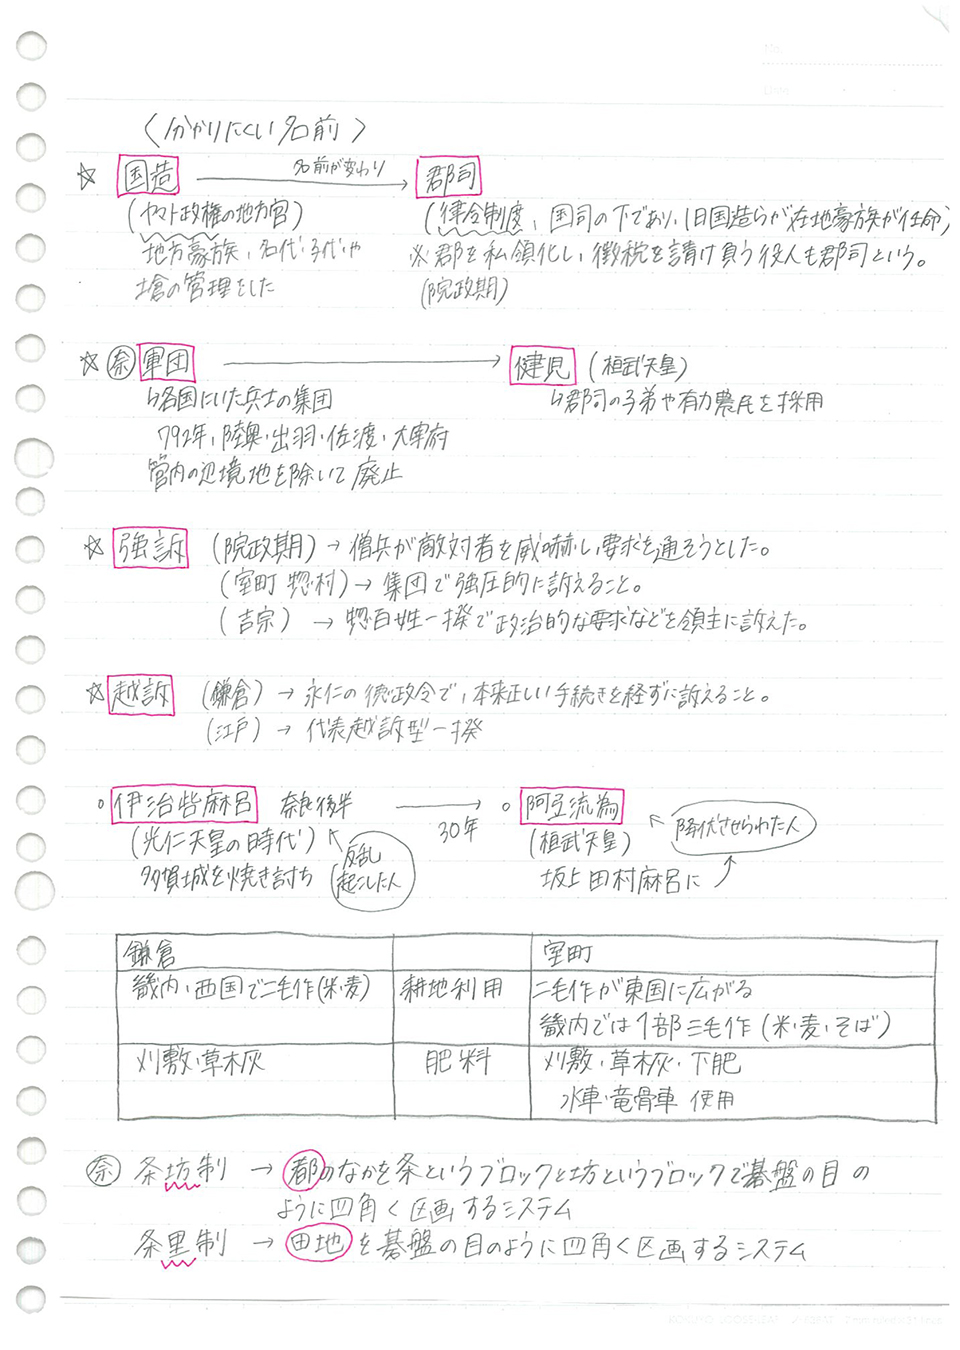 〈分かりにくい名前〉
☆ 国造 名前が変わり→ 郡司
(ヤマト政権の地方官) (律令制度、国司の下であり、旧国造らが在地豪族が任命)
地方豪族、名代・子代や ※郡を私領化し、徴税を請け負う役人も郡司という。
倉の管理をした (院政期)
☆ 奈 軍団 → 健児 (桓武天皇)
↳各国にいた兵士の集団 ↳郡司の子弟や有力農民を採用
792年、陸奥・出羽・佐渡・大宰府
管内の辺境地を除いて廃止
☆ 強訴 (院政期)→ 僧兵が敵対者を威嚇し、要求を通そうとした。
(室町 惣村)→ 集団で強圧的に訴えること。
(吉宗) → 惣百姓一揆で政治的な要求などを領主に訴えた。
☆ 越訴 (鎌倉)→ 永仁の徳政令で、本来正しい手続きを経ずに訴えること。
(江戸)→ 代表越訴型一揆
○ 伊治呰麻呂 奈良後半 → 30年 ○ 阿弖流為 ← 降伏させられた人
(光仁天皇の時代) 反乱 (桓武天皇)
多賀城を焼き討ち 起こした人 坂上田村麻呂に
鎌倉 室町
畿内・西国で二毛作(米・麦) 耕地利用 二毛作が東国に広がる
畿内では1部三毛作(米・麦・そば)
刈敷・草木灰 肥料 刈敷・草木灰・下肥
水車・竜骨車 使用
奈 条坊制 → 都のなかを条というブロックと坊というブロックで碁盤の目の
ように四角く区画するシステム
条里制 → 田地を碁盤の目のように四角く区画するシステム